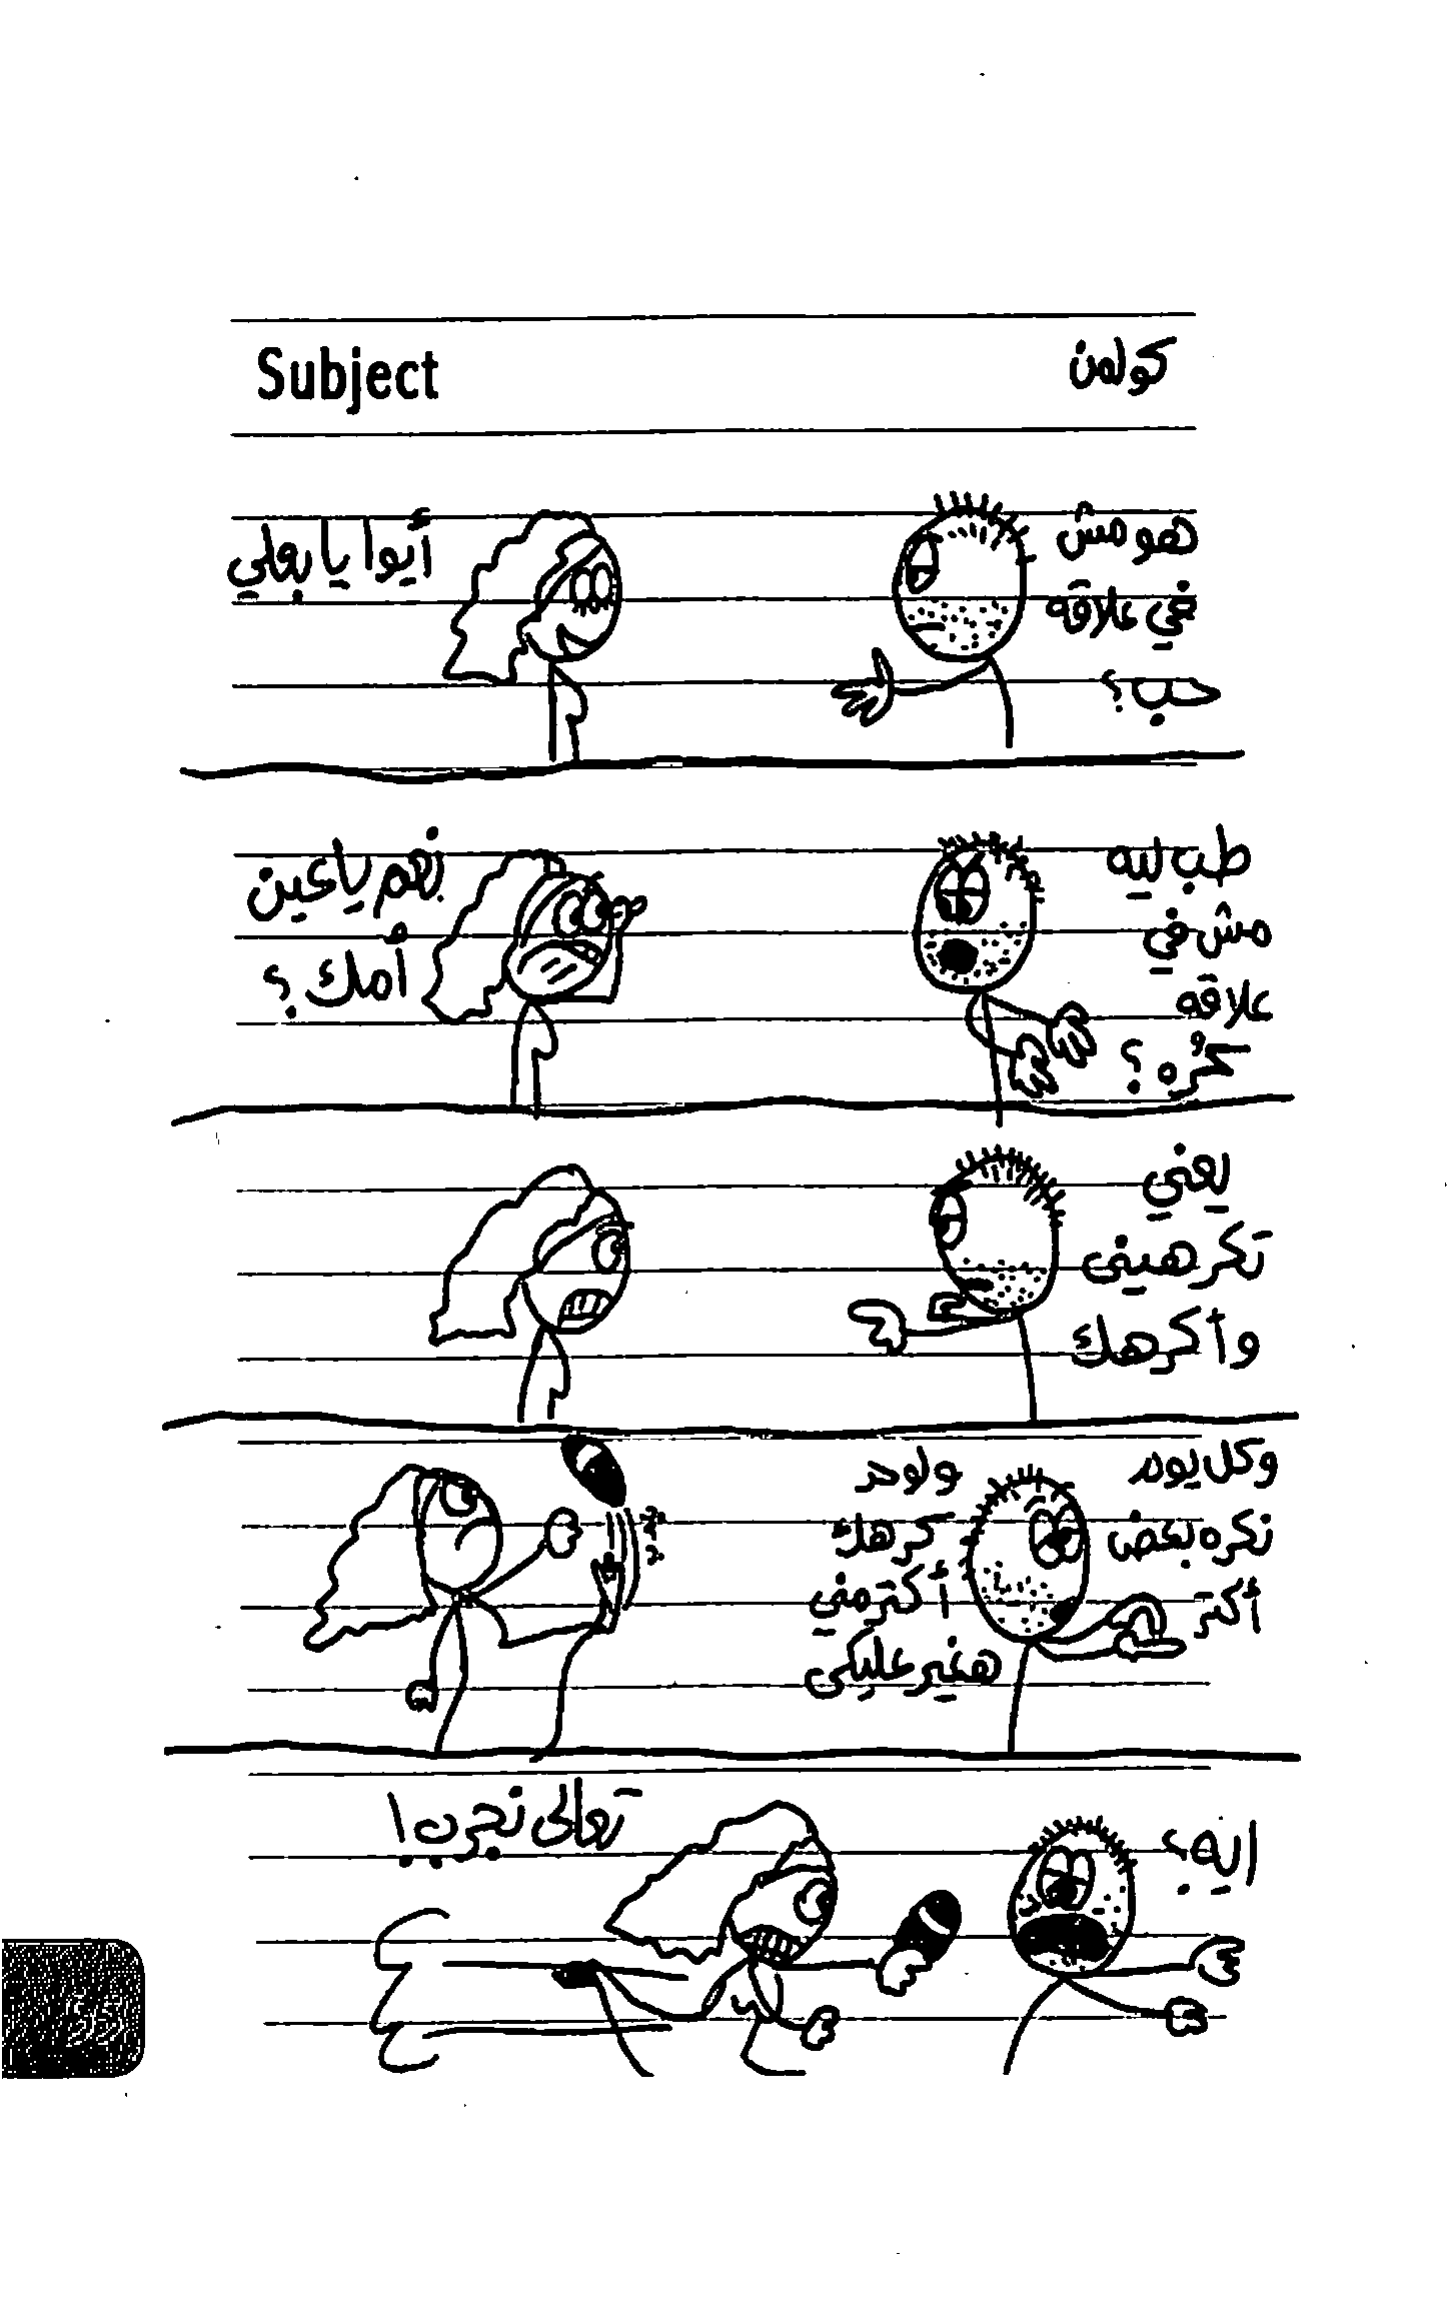 Subject
كولمن
هو مش
في علاقه
حب؟
أيوا يا بعلي
طب ليه
مش في
علاقه
كُره؟
نعم يا عين
أمك؟
يعني
تكرهيني
وأكرهك
وكل يوم
نكره بعض
أكتر
ولو حد
كرهك
أكتر مني
هغير عليكي
ايه؟
تعالى نجرب!